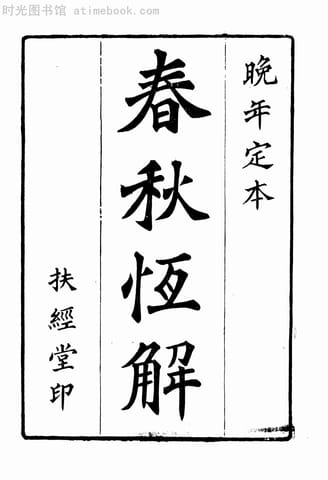 时光图书馆 atimebook.com
晚年定本
春秋恆解
扶經堂印